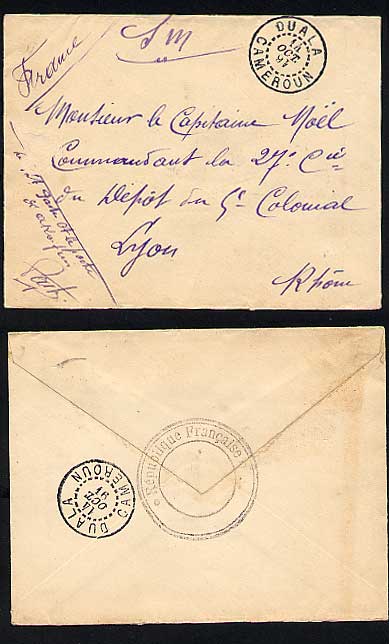 France
SM
DUALA
14
OCT
CAMEROUN
Monsieur le Capitaine Noël
Commandant la 27e Cie
du Dépôt du 5e Colonial
Lyon
Rhône
République Française
DUALA
14
OCT
CAMEROUN